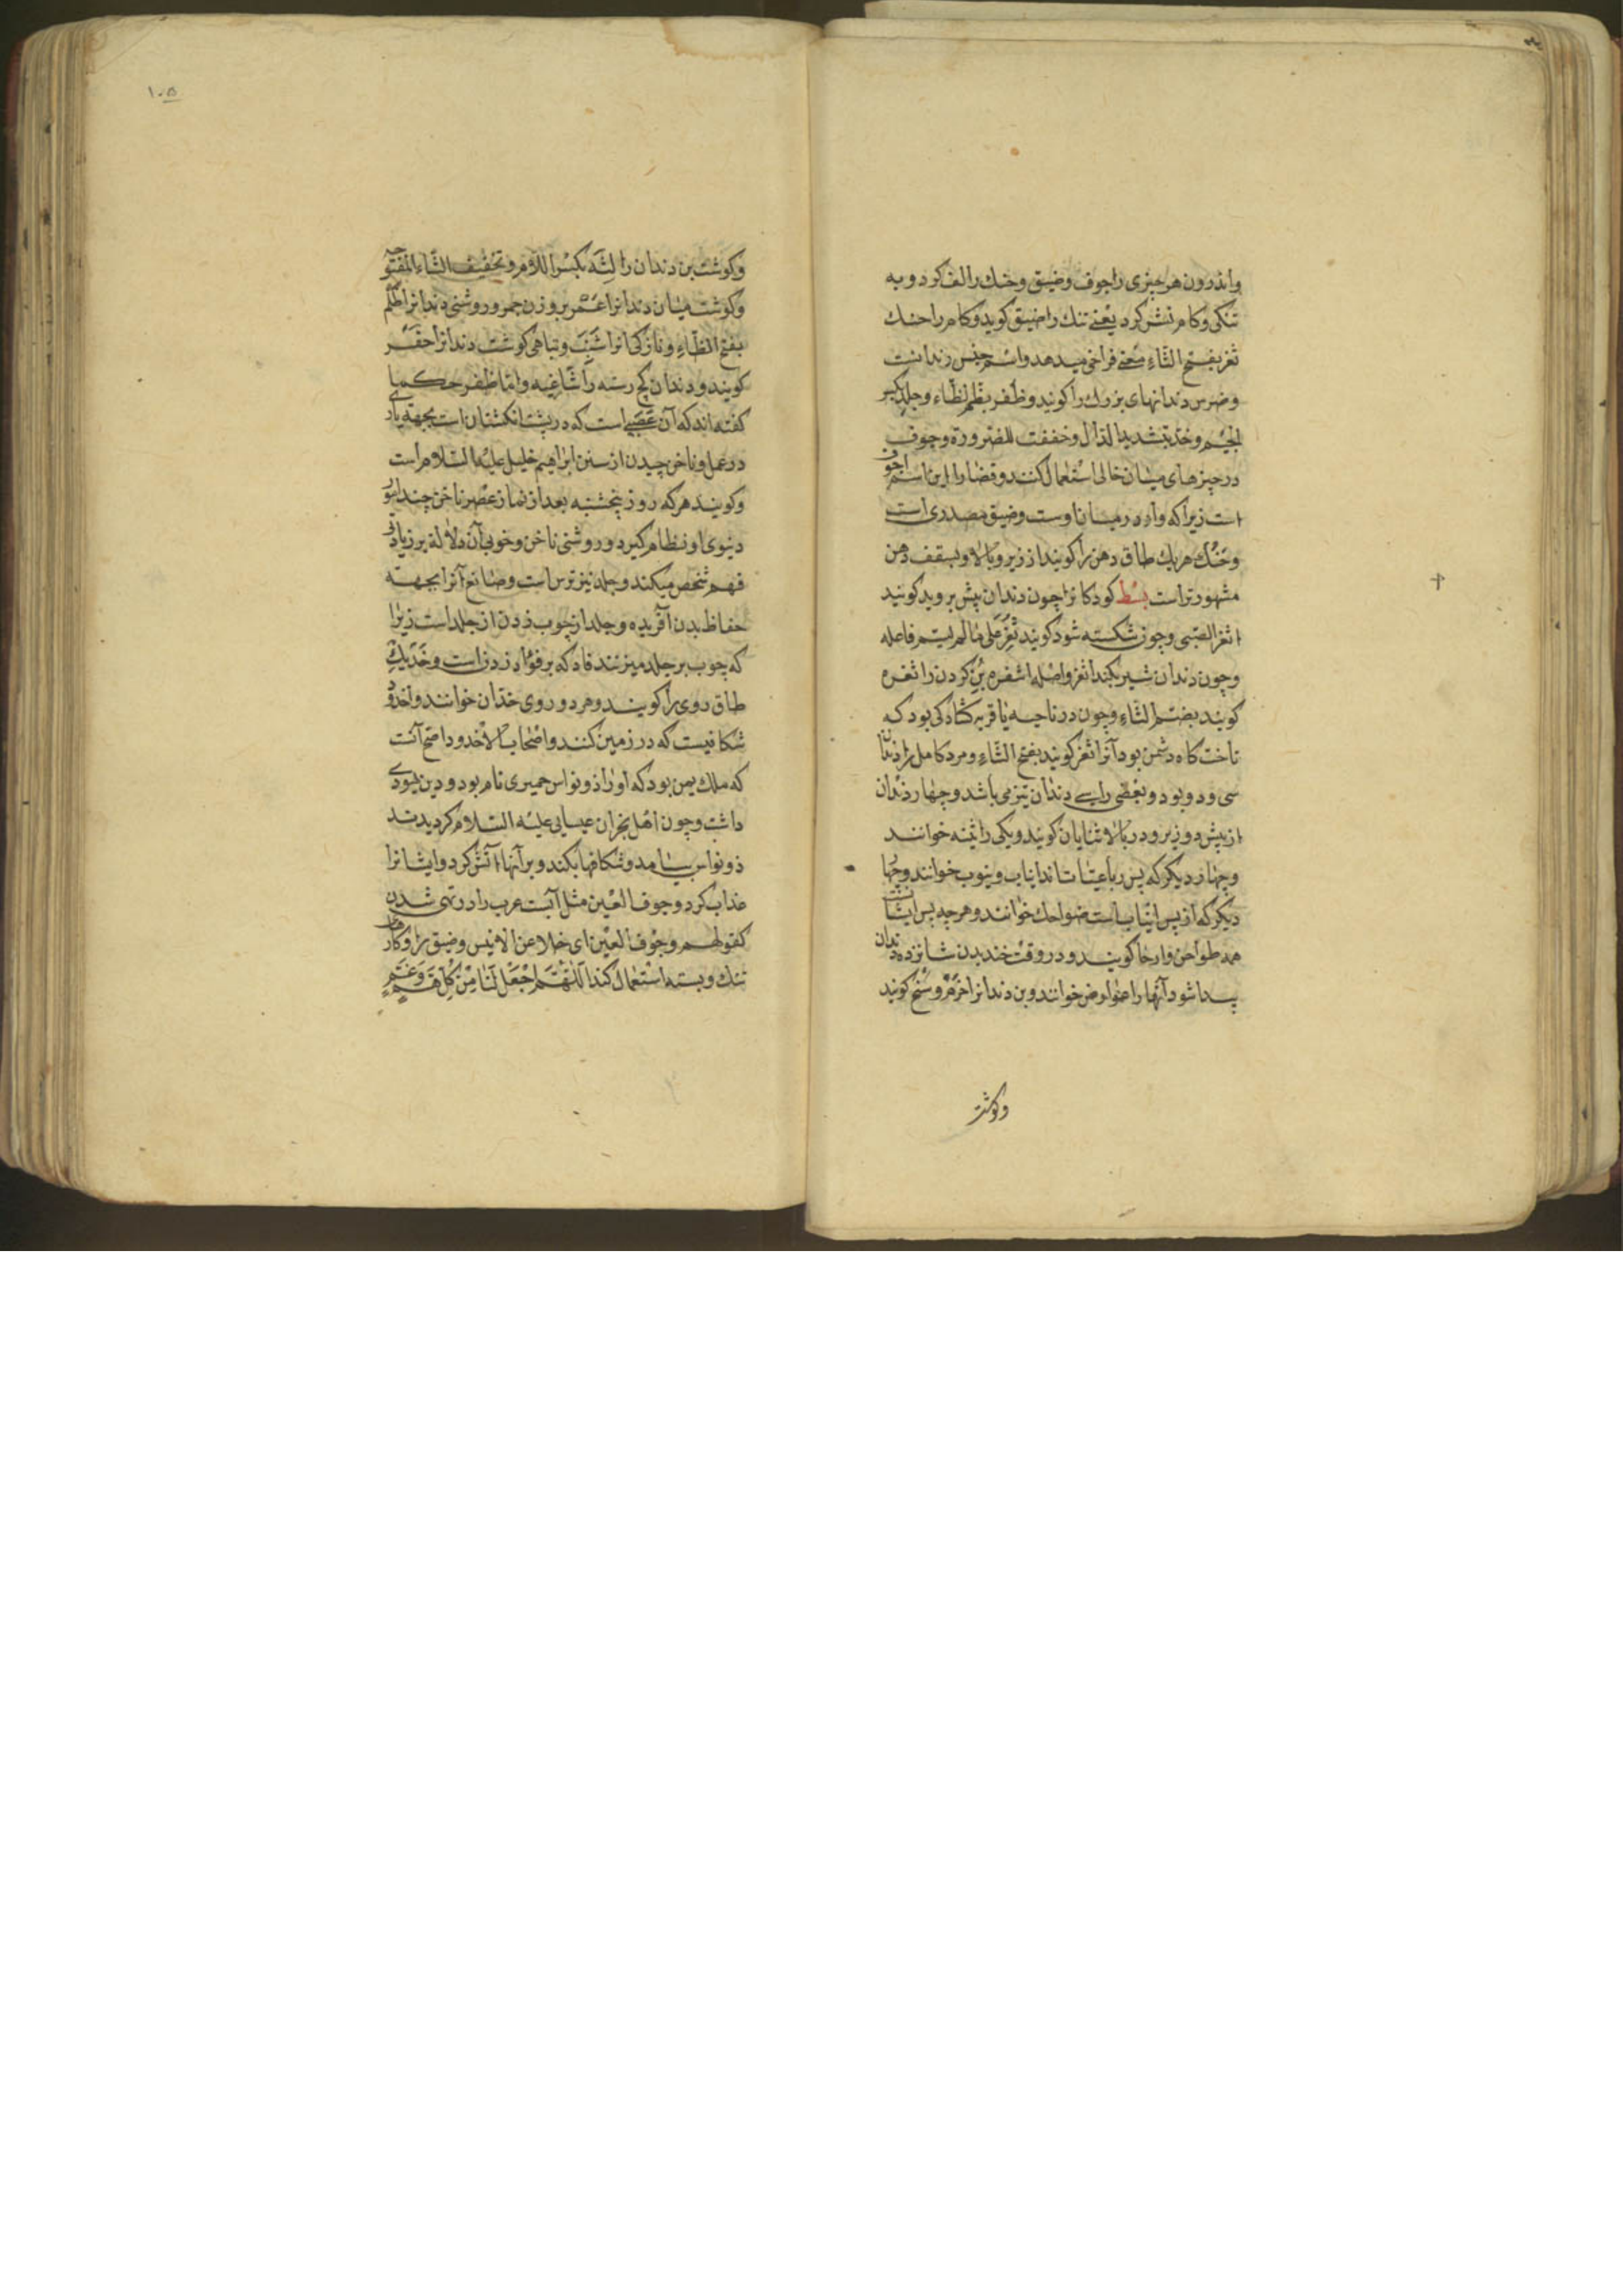 واندرون هر چیزی را جوف وضیق وحنك را لف کرد و به
تنکی وکام نشر کرد یعنی تنك را ضیق کوید وکام را حنك
ثغر بفتح الثاء معنی فراخی میدهد واسم جنس دندانست
وضرس دندانهای بزرك را کویند وظفر بضم الظاء وجلد بکسر
الجیم وخد بتشدید الدال وخففت للضرورة وجوف
در چیزهای میان خالی استعمال کنند وقضا را این اسم اجوف
است زیرا که واو در میان اوست وضیق مصدری است
وحنك هر یك طاق دهن را کویند از زیر وبالا وبسقف دهن
مشهورتر است بسط کودکانرا چون دندان پیش بروید کویند
اثغر الصبی وچون شکسته شود کویند ثغر علی مالم یسم فاعله
وچون دندان شیر بکند اثغر واصله اثتغر وبن کردن را ثغره
کویند بضم الثاء وچون در ناحیه یا قریه کشادکی بود که
تاخت کاه دشمن بود آنرا ثغر کویند بفتح الثاء ومرد کامل را دندان
سی ودو بود وبعضی را سی دندان نیز می باشد وچهار دندان
از پیش دو زیر ودو بالا ثنایا کویند ویکی را ثنیه خوانند
وچهار دیکر که پس رباعیات اند انیاب ونیوب خوانند وچهار
دیکر که از پس انیاب است ضواحك خوانند وهر چه پس ایشانست
همه طواحن وارحا کویند ودر وقت خندیدن شانزده دندان
پیدا شود آنها را عوارض خوانند وبن دندانرا وسنخ کویند
وکوشت
۱۰۵
وکوشت بن دندان را لثة بکسر اللام وتخفیف الثاء المفتوحه
وکوشت میان دندانرا عمر بر وزن جمر وروشنی دندانرا ظلم
بفتح الظاء ونازکی آنرا شنب وتباهی کوشت دندانرا حفر
کویند ودندان کج رسته را شاغیه واما ظفر حکما
کفته اند که آن عصبی است که در پشت انکشتان است بجهة یاری
در عمل وناخن چیدن از سنن ابراهیم خلیل علیه السلام است
وکویند هر که روز پنجشنبه بعد از نماز عصر ناخن چیند امور
دنیوی او نظام کیرد وروشنی ناخن وخوبی آن دلالة بر زیادتی
فهم شخص میکند وجلد نیز ترس است وصانع آنرا بجهة
حفاظ بدن آفریده وجلد از چوب زدن از جلد است زیرا
که چوب بر جلد میزنند فاد که بر فؤاد زدن است وخد یك
طاق روی را کویند وهر دو روی خدان خوانند واخدود
شکافیست که در زمین کنند واصحاب الاخدود اصح آنست
که ملك یمن بود که او را ذونواس حمیری نام بود ودین یهودی
داشت وچون اهل نجران عیسایی علیه السلام کردیدند
ذونواس بیامد وشکافها بکند وبر آنها آتش کرد وایشانرا
عذاب کرد وجوف العین مثل آیت عرب را در تهی شدن
کقولهم وجوف العین ای خلا عن الانیس وضیق را در کار
تنك وبسته استعمال کند اللهم اجعل لنا من کل هم وغم